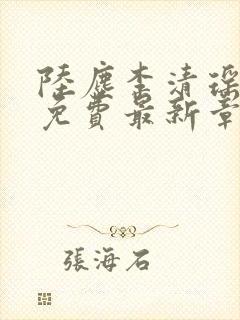 陸塵李清瑶
免費最新章
張海石